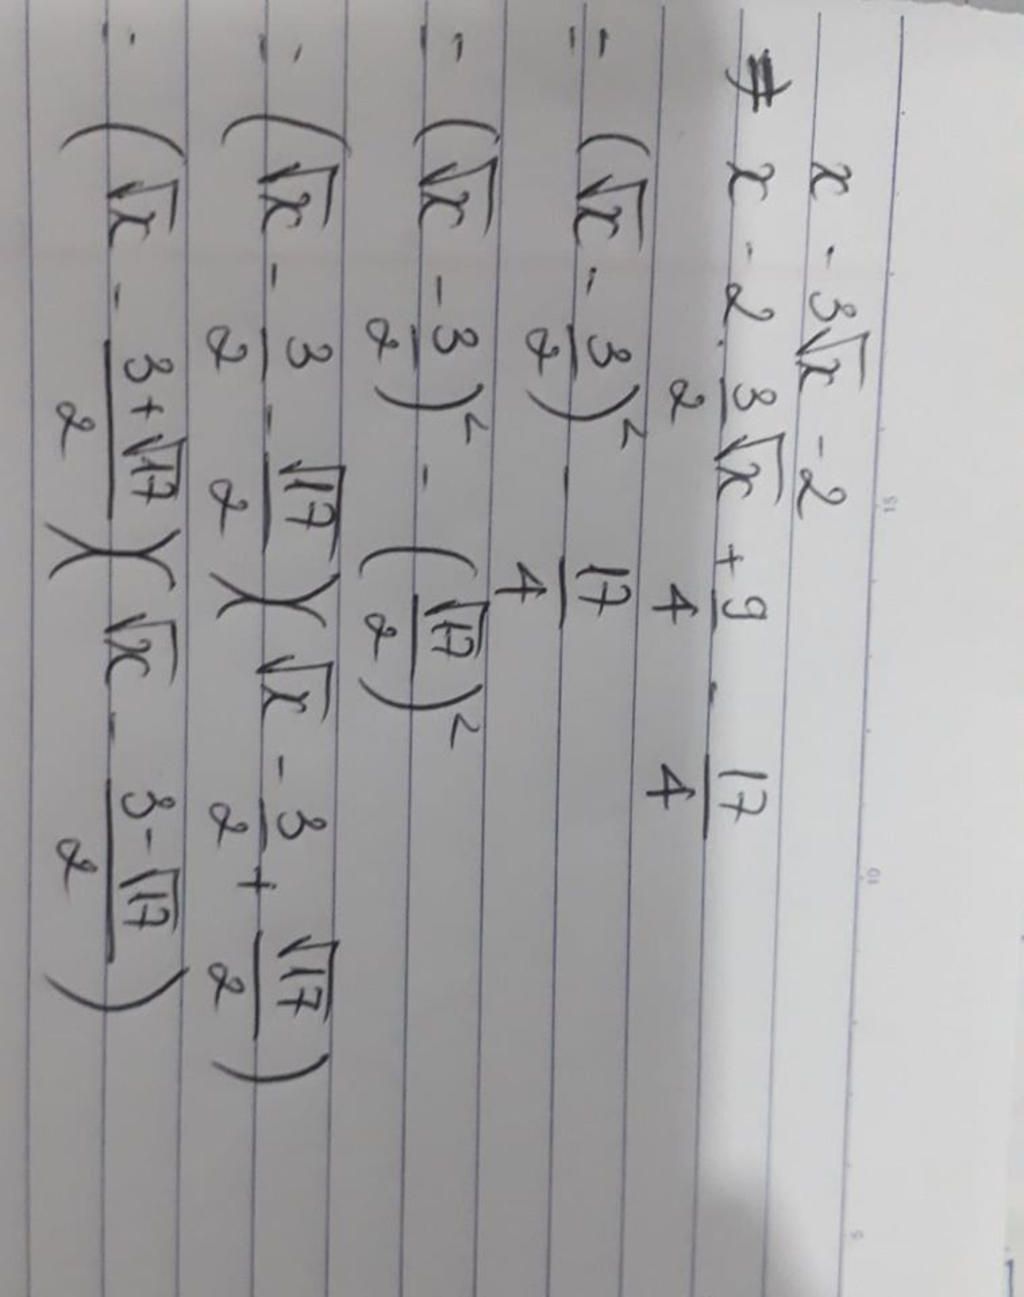 x - 3√x - 2
= x - 2 · 3/2 √x + 9/4 - 17/4
= (√x - 3/2)² - 17/4
= (√x - 3/2)² - (√17/2)²
= (√x - 3/2 - √17/2)(√x - 3/2 + √17/2)
= (√x - (3+√17)/2)(√x - (3-√17)/2)
15
10
5